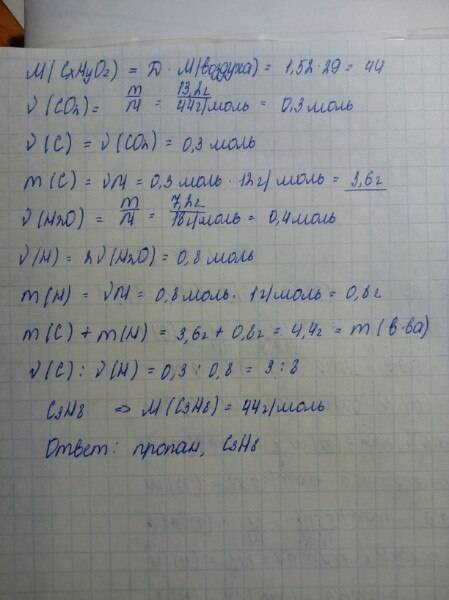 M(CxHyOz) = D · M(воздуха) = 1,52 · 29 = 44
ν(CO2) = m/M = 13,2г/44г/моль = 0,3 моль
ν(C) = ν(CO2) = 0,3 моль
m(C) = νM = 0,3 моль · 12г/моль = 3,6г
ν(H2O) = m/M = 7,2г/18г/моль = 0,4 моль
ν(H) = 2ν(H2O) = 0,8 моль
m(H) = νM = 0,8 моль · 1г/моль = 0,8г
m(C) + m(H) = 3,6г + 0,8г = 4,4г = m(в-ва)
ν(C) : ν(H) = 0,3 : 0,8 = 3 : 8
C3H8 => M(C3H8) = 44г/моль
Ответ: пропан, C3H8